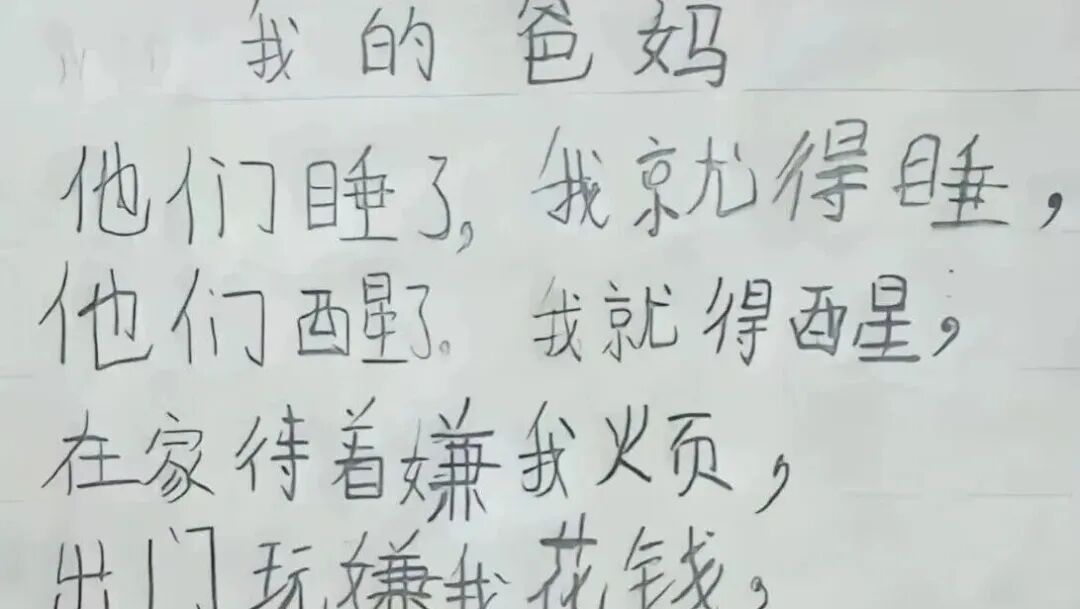 我的爸妈
他们睡了,我就得睡,
他们醒了。我就得醒,
在家待着嫌我烦,
出门玩嫌我花钱,